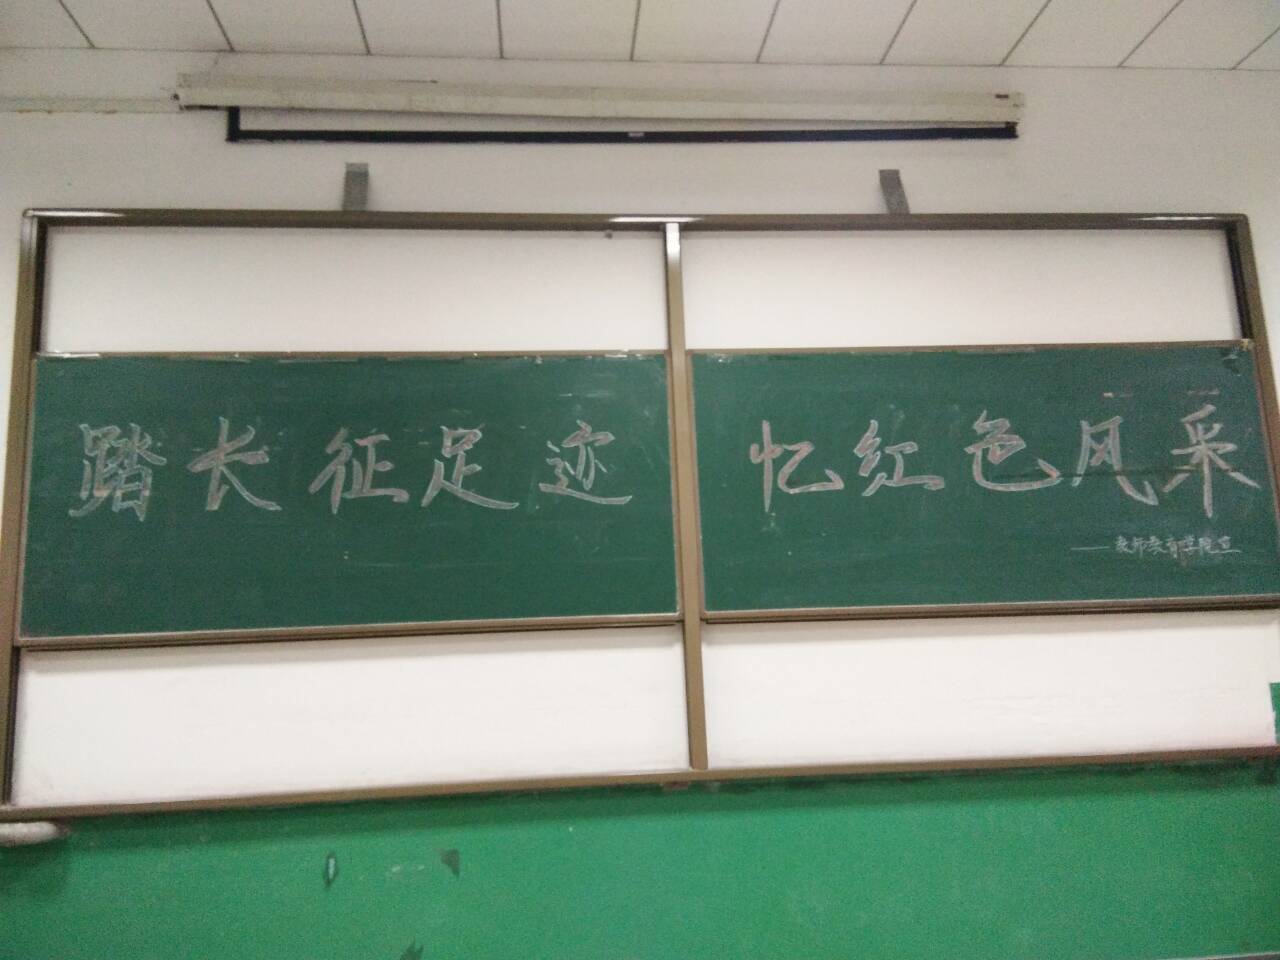 踏长征足迹 忆红色风采
——教师教育学院宣